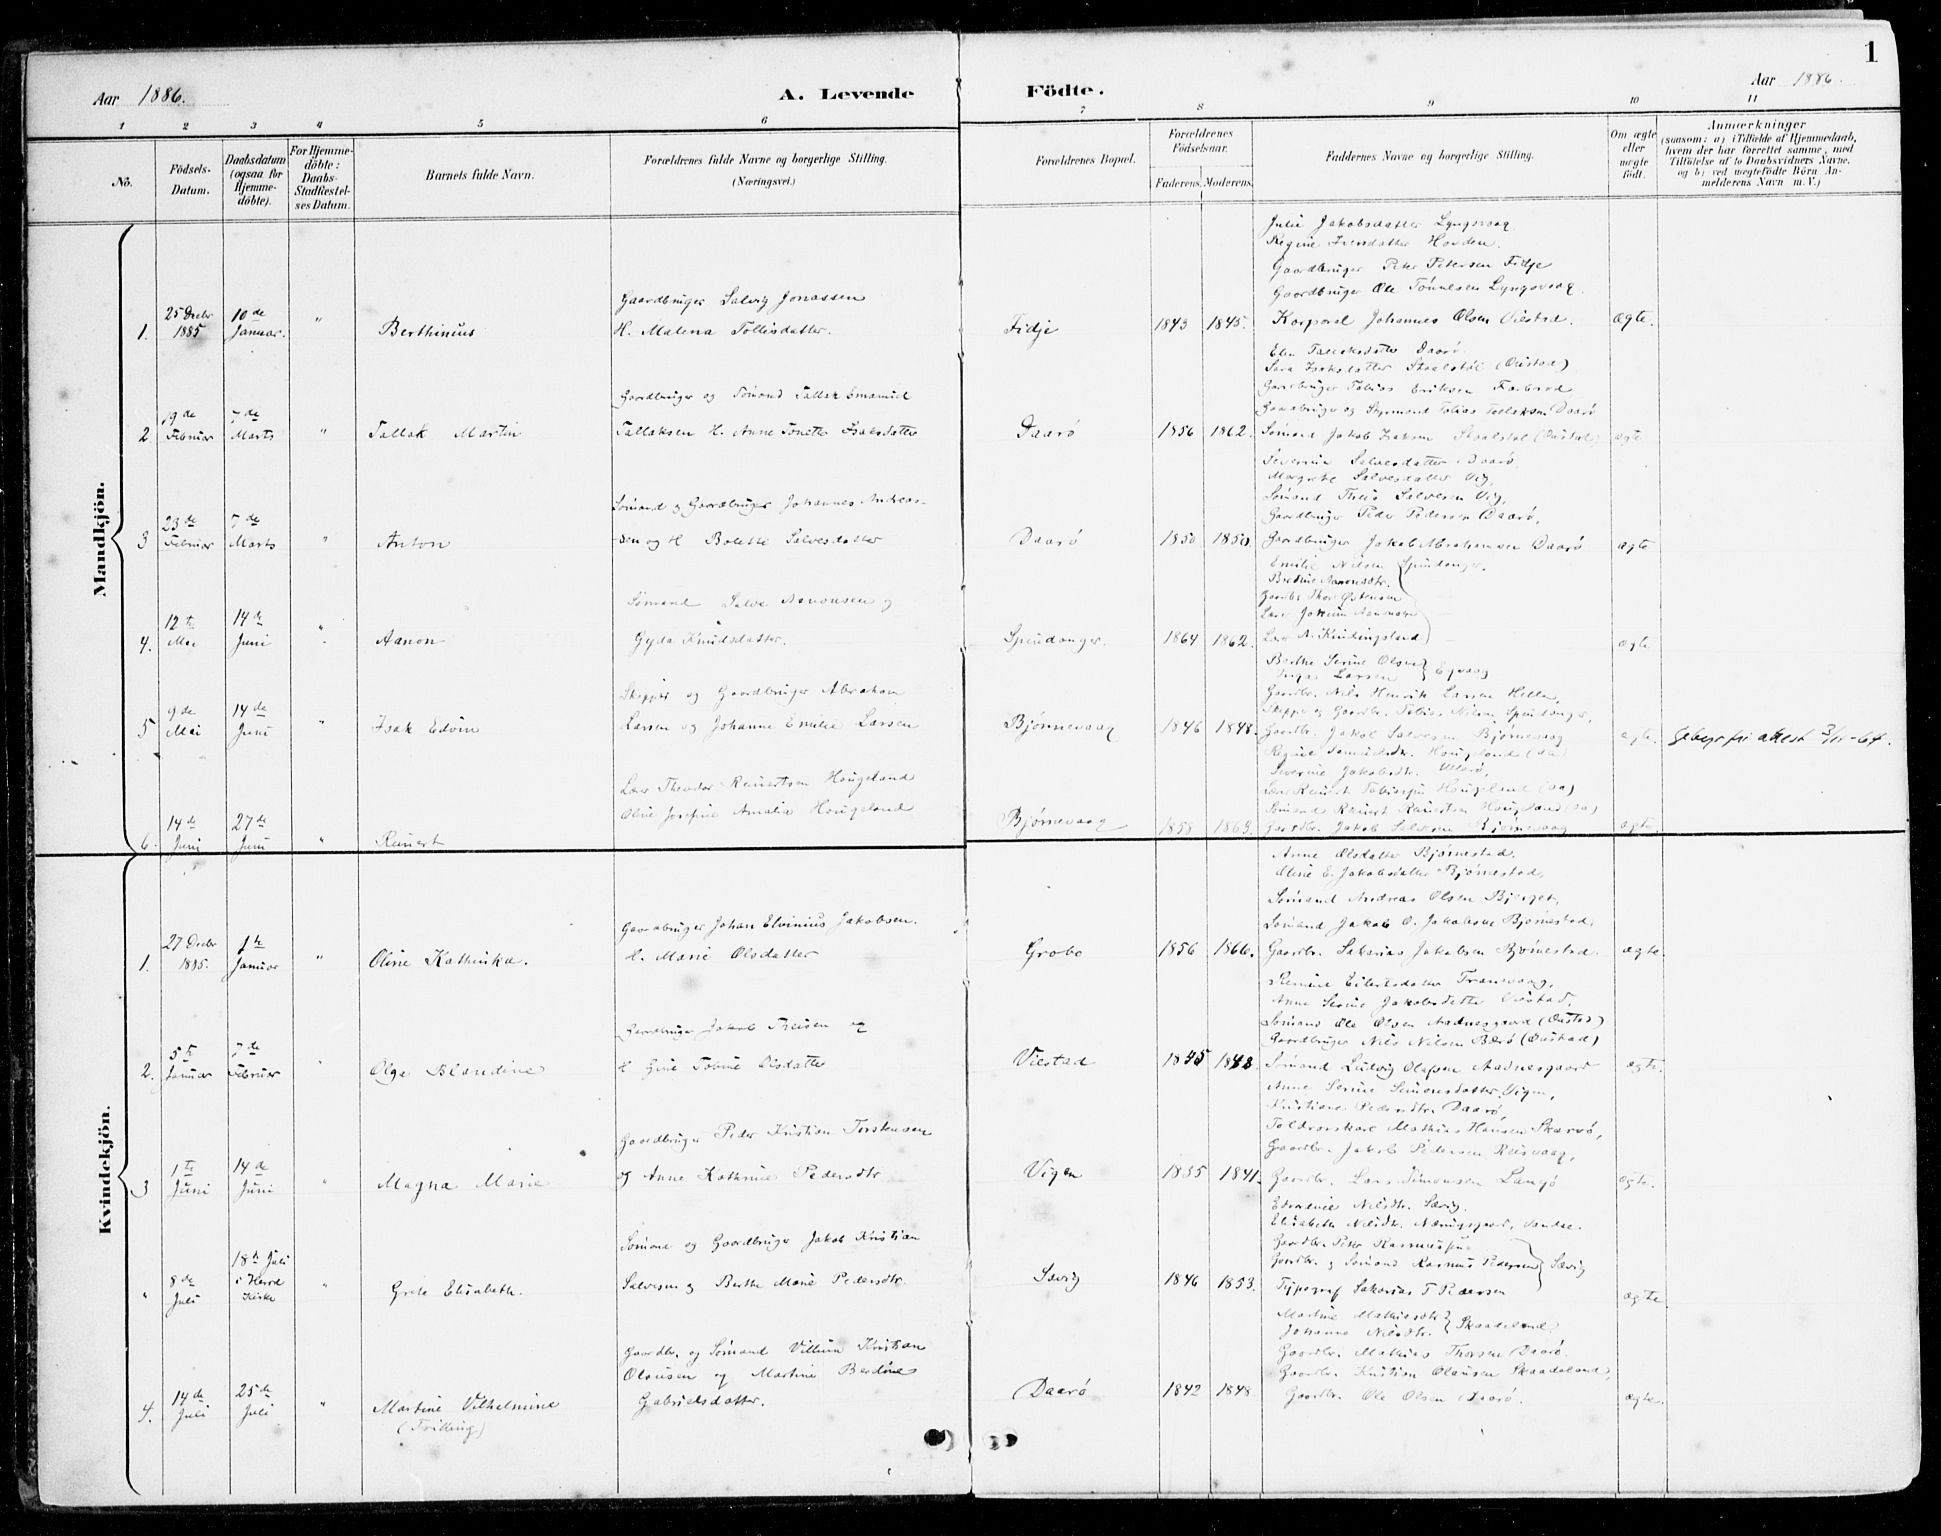 1
Aar 1886.
A. Levende Födte.
Aar 1886.
1 2 3 4 5 6 7 8 9 10 11
No.
Födsels-
Datum.
Daabsdatum
(ogsaa for
Hjemme-
döbte).
For Hjemme-
döbte:
Daabs-
Stadfæstel-
ses Datum.
Barnets fulde Navn.
Forældrenes fulde Navne og borgerlige Stilling.
(Næringsvei.)
Forældrenes Bopæl.
Forældrenes
Födselsaar.
Faderens. Moderens.
Faddernes Navne og borgerlige Stilling.
Om ægte
eller
uægte
födt.
Anmærkninger
(saasom: a) i Tilfælde af Hjemmedaab,
hvem der har forrettet samme, med
Tilföielse af to Daabsvidners Navne.
og b) ved uægtefödte Börn An-
melderens Navn m. V.)
Mandkjön.
1. 25 Decbr 1885 10de Januar. " Berthinius
Gaardbruger Salvig Jonassen
H. Malena Tollisdatter.
Fidje 1843 1845.
Julie Jakobsdatter Lyngsvaag
Regine Iversdatter Hovden.
Gaardbruger Peter Petersen Fidje
Gaardbruger Ole Tönnesen Lyngsvaag.
Korporal Johannes Olsen Viestad. ægte.
2. 19de Februar 7de Marts " Tallak Martin
Gaardbruger og Sömand Tallak Emanuel
Tallaksen H. Anne Tonette Isaksdatter
Daarö 1856 1862.
Elen Tallaksdatter Daarö
Sara Isaksdatter Skaalstöl (Oustad)
Gaardbruger Tobias Eriksen Farbrod
Gaardbruger og Styrmand Tobias Tallaksen Daarö
Sömand Jakob Isaksen Skaalstöl (Oustad) ægte
3 23de Februar 7de Marts " Anton
Sömand og Gaardbruger Johannes Andreas-
sen og H Bolette Salvesdatter
Daarö 1850 1850.
Severine Salvesdatter Daarö,
Margrete Salvesdatter Vig,
Sömand Theis Salvesen Vig,
Gaardbruger Peder Pedersen Daarö,
Gaardbruger Jakob Abrahamsen Daarö ægte
4. 12te Mai 14de Juni " Aanon
Sömand Salve Aanonsen og
Gyda Knudsdatter.
Spindanger. 1864 1862.
Emilie Nilsen Spindanger.
Berdine Aanonsdtr.
Gaardbr Thore Östensen
Lærer Jokum Aanonsen
Lærer A. Kindingsland ægte
5 9de Mai 14de Juni " Isak Edvin
Skipper og Gaardbruger Abraham
Larsen og Johanne Emilie Larsen
Bjørnevaag 1846 1848.
Berthe Serine Olsen Egvaag
Inga Larsen
Gaardbr. Nils Henrik Larsen Helle,
Skipper og Gaardbr. Tobias Nilsen Spindanger,
Gaardbr. Jakob Salvesen Bjørnevaag ægte. Gebyr fri attest 3/11-64.
6. 14de Juni 27de Juni " Reinert
Lærer Theodor Reinertsen Hougeland
Oline Josefine Amalia Hougeland
Bjørnevaag 1858 1863.
Regine Samuelsdtr. Hougeland (Aa)
Severine Jakobsdtr. Ullerö,
Lærer Reinert Tobiassen Hougeland (Aa)
Sömand Reinert Reinertsen Hougeland (Aa)
Gaardbr. Jakob Salvesen Bjørnevaag ægte.
Kvindekjön.
1. 27 Decbr 1885. 1te Januar " Oline Kathinka.
Gaardbruger Johan Elvinius Jakobsen.
H. Marie Olsdatter
Grobo 1856 1866.
Anne Olsdatter Bjørnestad.
Oline E. Jakobsdatter Bjørnestad,
Sömand Andreas Olsen Bjerget,
Sömand Jakob O. Jakobsen Bjørnestad,
Gaardbr. Sakarias Jakobsen Bjørnestad. ægte.
2. 5te Januar 7de Februar " Olga Blandine
Gaardbruger Jakob Theisen og
H Gine Tobine Olsdatter
Viestad 1845 1848
Eilertsdatter Tranevaag,
Anne Serine Jakobsdatter Viestad,
Sömand Ole Olsen Aadnesgaard (Oustad)
Gaardbruger Nils Nilsen Berö (Oustad)
Sömand Ludvig Olafsen Aadnesgaard ægte.
3 1te Juni 14de Juni " Magna Marie
Gaardbruger Peder Kristian Terkelsen
og Anne Kathrine Pedersdtr.
Vigen 1835 1841.
Anne Serine Simonsdatter Vigen,
Kristiane Pedersdtr. Daarö,
Toldrorskarl Mathias Hansen Skarvö,
Gaardbr. Jakob Pedersen Reisvaag,
Gaardbr. Lars Simonsen Langö ægte.
" 8de Juli 18de Juli i Herred Kirke " Grete Elisabeth.
Sömand og Gaardbruger Jakob Kristian
Salvesen og Berthe Marie Pedersdtr.
Sævig 1846 1853.
Edvardine Nilsdtr. Sævig.
Elisabeth Nilsdtr. Næringsgaard, Vandsø.
Gaardbr. Peter Rasmussen
Gaardbr. og Sömand Rasmus Pedersen Sævig
Typograf Sakarias T Pedersen ægte
4. 14de Juli 25de Juli " Martine Vilhelmine
(Trilling)
Gaardbr. og Sömand Villum Kristian
Olausen og Martine Berdine
Gabrielsdatter.
Daarö 1842 1848
Martine Mathiesdtr Skaadeland,
Johanne Nilsdtr.
Gaardbr. Mathias Thorsen Daarö.
Gaardbr. Kristian Olausen Skaadeland,
Gaardbr. Ole Olsen Daarö. ægte.